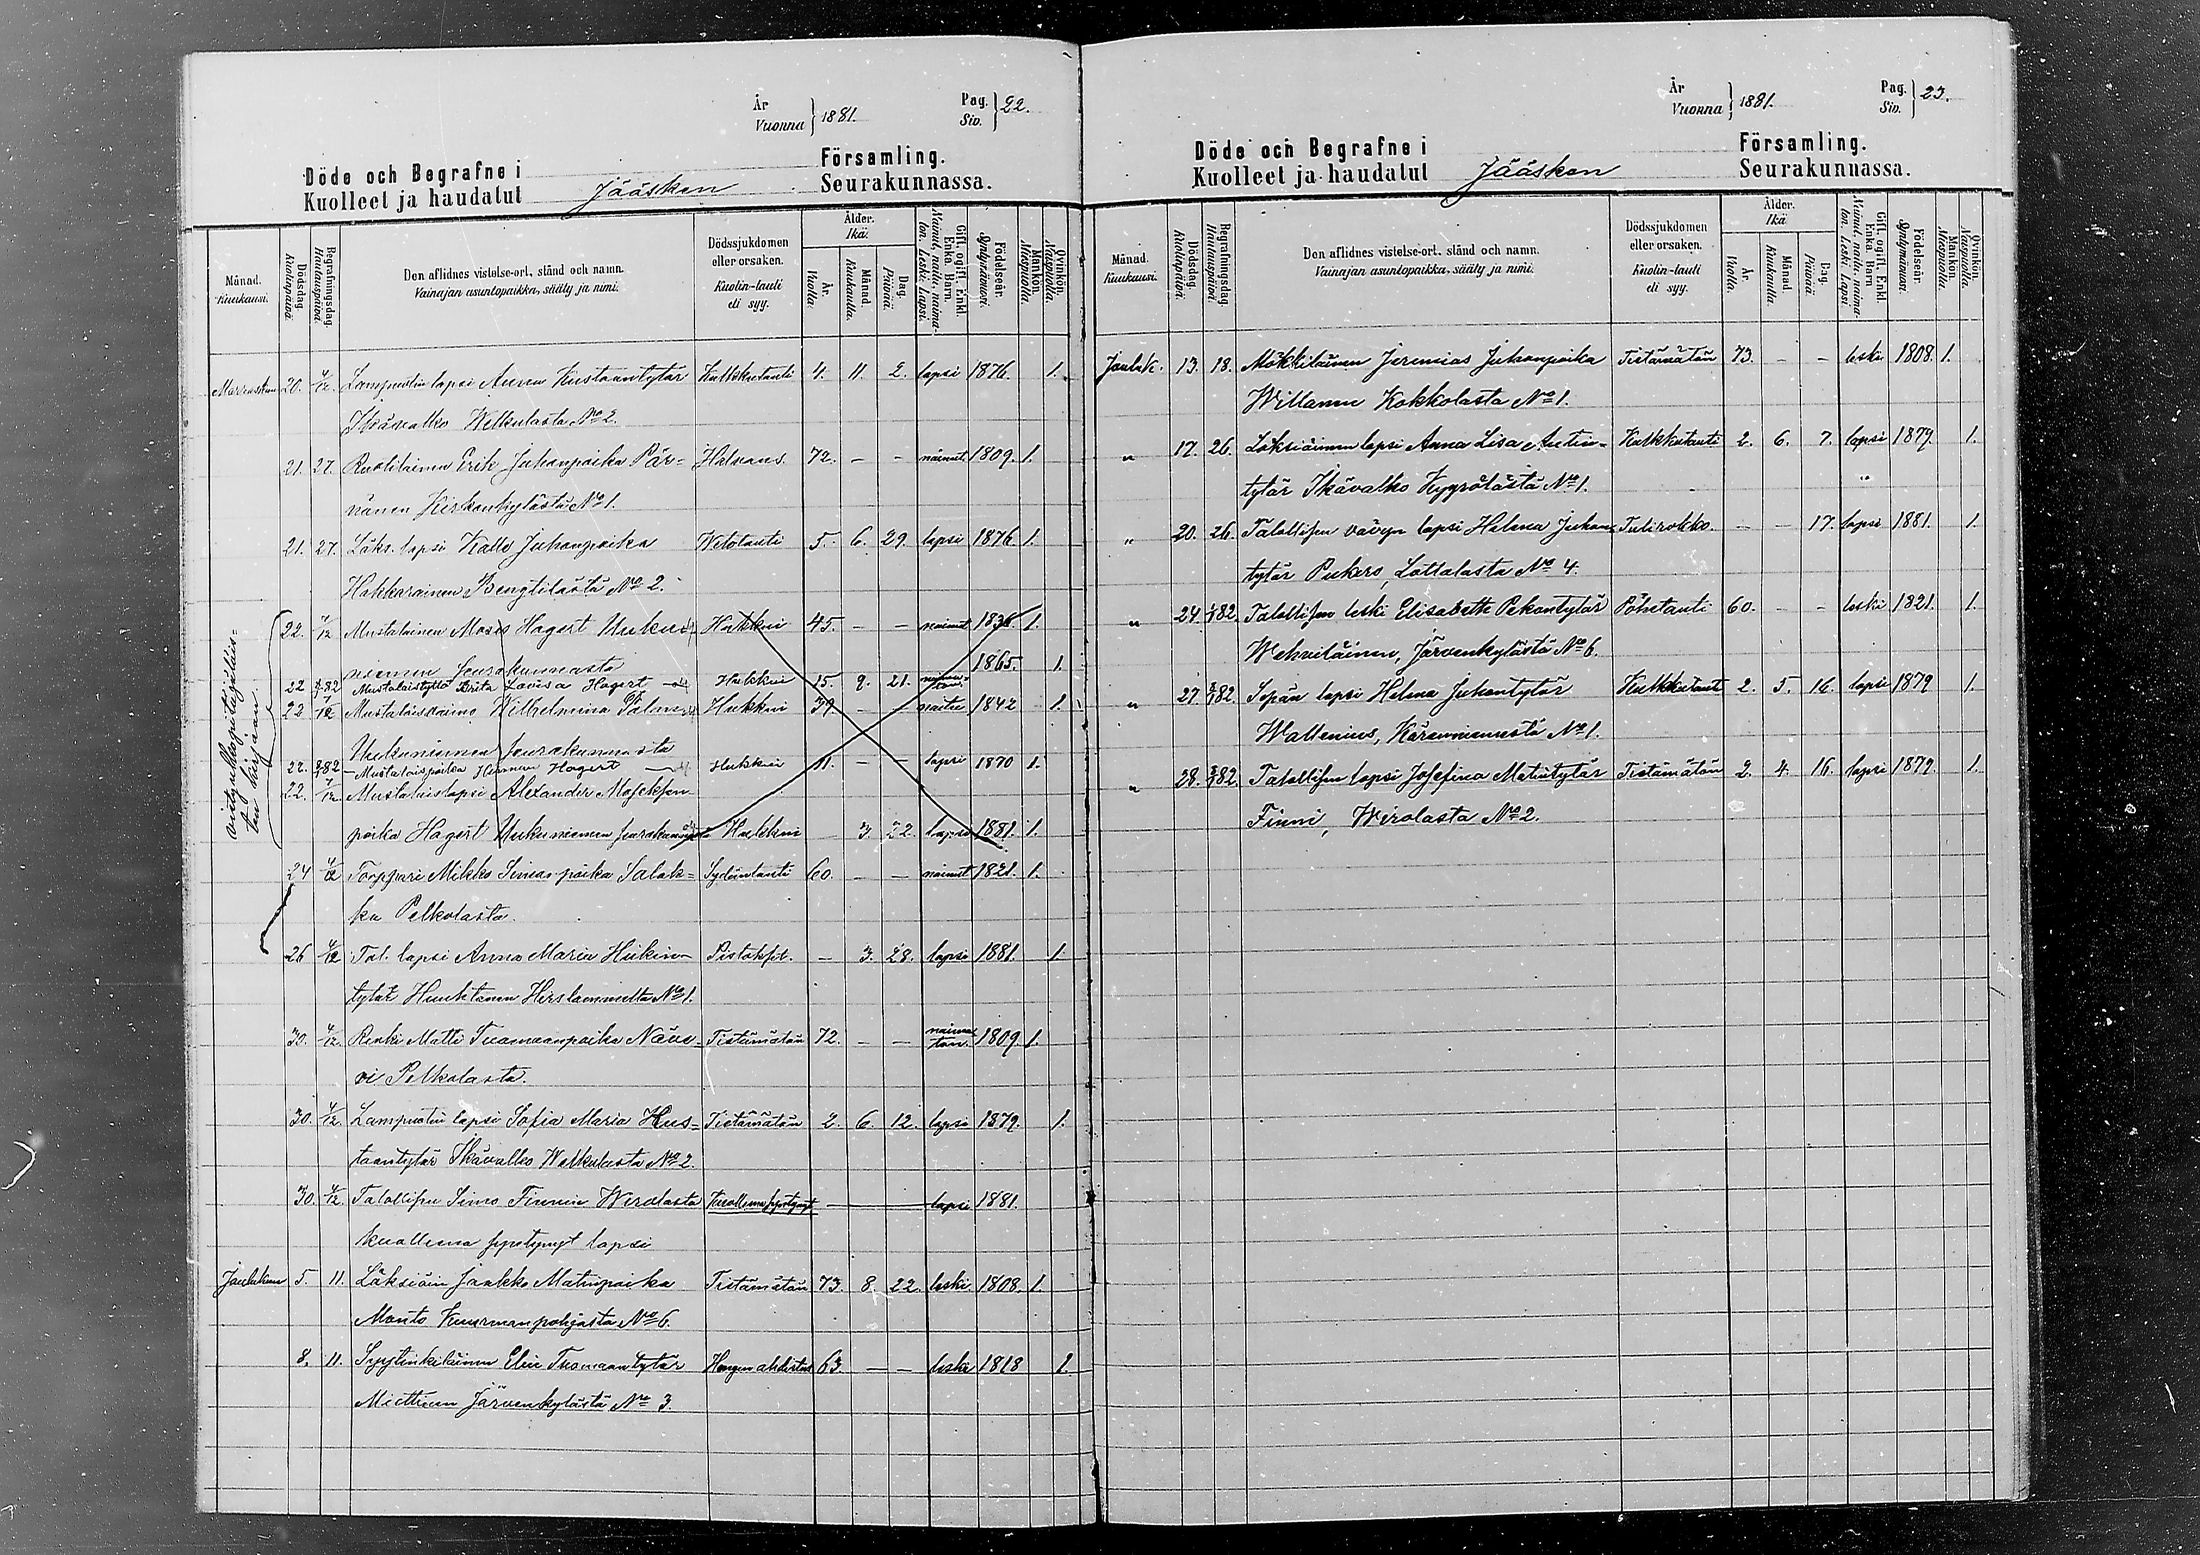 År
Vuonna } 1881.
Pag.
Siv. } 22.
Döde och Begrafne i Församling.
Kuolleet ja haudatut Jääsken Seurakunnassa.
Månad. Kuukausi.
Dödsdag. Kuolinpäivä.
Begrafningsdag. Hautauspäivä.
Den aflidnes vistelse-ort, stånd och namn.
Vainajan asuntopaikka, sääty ja nimi.
Dödssjukdomen eller orsaken.
Kuolin-tauti eli syy.
Ålder. Ikä.
År. Vuotta.
Månad. Kuukautta.
Dag. Päiviä.
Gift, ogift, Enkl. Enka, Barn.
Nainut, naitu, naimaton, leski, lapsi.
Födelseår. Syntymävuosi.
Mankön. Miespuolia.
Qvinkön. Naispuolia.
Marraskuu 20. 4/12. Lampuotin lapsi Anna Kustaantytär Kurkkutauti 4. 11. 2. lapsi 1876. 1.
Ikävalko Welkulasta No 2.
21. 27. Ruotilainen Erik Juhanpoika Pär- Halvaus. 72. — — nainut 1809. 1.
nänen Kirkonkylästä No 1.
21. 27. Läks. lapsi Kalle Juhanpoika Wetotauti 5. 6. 29. lapsi 1876. 1.
Hakkarainen Bengtilästä No 2.
22. 1/12 Mustalainen Moses Hagert Uuku- Hukkui 45. — — nainut 1836. 1.
niemen seurakunnasta
22 82 Mustalaistyttö Brita Lovisa Hagert Hukkui 15. 9. 21. naimaton 1865. 1.
22 1/12 Mustalaisvaimo Wilhelmina Palm Hukkui 39. — — naitu 1842 1.
Uukuniemen seurakunnasta
22. 82 Mustalaispoika Herman Hagert Hukkui 11. — — lapsi 1870 1.
22. 1/12 Mustalaislapsi Alexander Moseksen-
poika Hagert Uukuniemen seurakunnasta Hukkui 3. 22. lapsi 1881. 1.
24 4/12 Torppari Mikko Simonpoika Salak- Sydäntauti 60. — — nainut 1821. 1.
ka Pelkolasta.
26 4/12 Tal. lapsi Anna Maria Heikin- — 3. 28. lapsi 1881. 1.
tytär No 1.
30. 4/12. Renki Matti Tuomaanpoika Tietämätön 72. — — naimaton. 1809 1.
Pelkolasta.
30. 4/12. Lampuotin lapsi Sofia Maria Kus- Tietämätön 2. 6. 12. lapsi 1879. 1.
taantytär Ikävalko Welkulasta No 2.
30. 4/12 Talollisen Simo Finnin Wirolasta Kuollena syntynyt — lapsi 1881.
kuollena syntynyt lapsi
Joulukuu 5. 11. Läksiäin Jaakko Matinpoika Tietämätön 73. 8. 22. leski 1808. 1.
Monto Kuurmanpohjasta No 6.
8. 11. Syytinkiläinen Elin Thomaantytär Hengenahdistus 63. — — leski 1818 1.
Miettinen Järvenkylästä No 3.
vist.
År
Vuonna } 1881.
Pag.
Siv. } 23.
Döde och Begrafne i Församling.
Kuolleet ja haudatut Jääsken Seurakunnassa.
Månad. Kuukausi.
Dödsdag. Kuolinpäivä.
Begrafningsdag. Hautauspäivä.
Den aflidnes vistelse-ort, stånd och namn.
Vainajan asuntopaikka, sääty ja nimi.
Dödssjukdomen eller orsaken.
Kuolin-tauti eli syy.
Ålder. Ikä
År. Vuotta.
Månad. Kuukautta.
Dag. Päiviä.
Gift, ogift, Enkl. Enka, Barn
Nainut, naitu, naimaton, leski, lapsi.
Födelseår. Syntymävuosi.
Mankön. Miespuolia.
Qvinkön. Naispuolia.
Jouluk. 13. 18. Mökkiläinen Jeremias Juhanpoika Tietämätön 73. — — leski 1808. 1.
Willanen Kokkolasta No 1.
" 17. 26. Läksiäinen lapsi Anna Lisa Antin- Kurkkutauti 2. 6. 7. lapsi 1879. 1.
tytär Ikävalko Kyyrölästä No 1.
" 20. 26. Talollisen vävyn lapsi Helena Juhan- Tulirokko — — 17. lapsi 1881. 1.
tytär Pukero, Lottolasta No 4.
" 24. 82. Talollisen leski Elisabetta Pekantytär Pöhötauti 60. — — leski 1821. 1.
Wehviläinen, Järvenkylästä No 6.
" 27. 82. Sepän lapsi Helma Juhantytär Kurkkutauti 2. 5. 16. lapsi 1879 1.
Wallenius, Kärenniemestä No 1.
" 28. 82. Talollisen lapsi Josefina Matintytär Tietämätön 2. 4. 16. lapsi 1879. 1.
Finni, Wirolasta No 2.